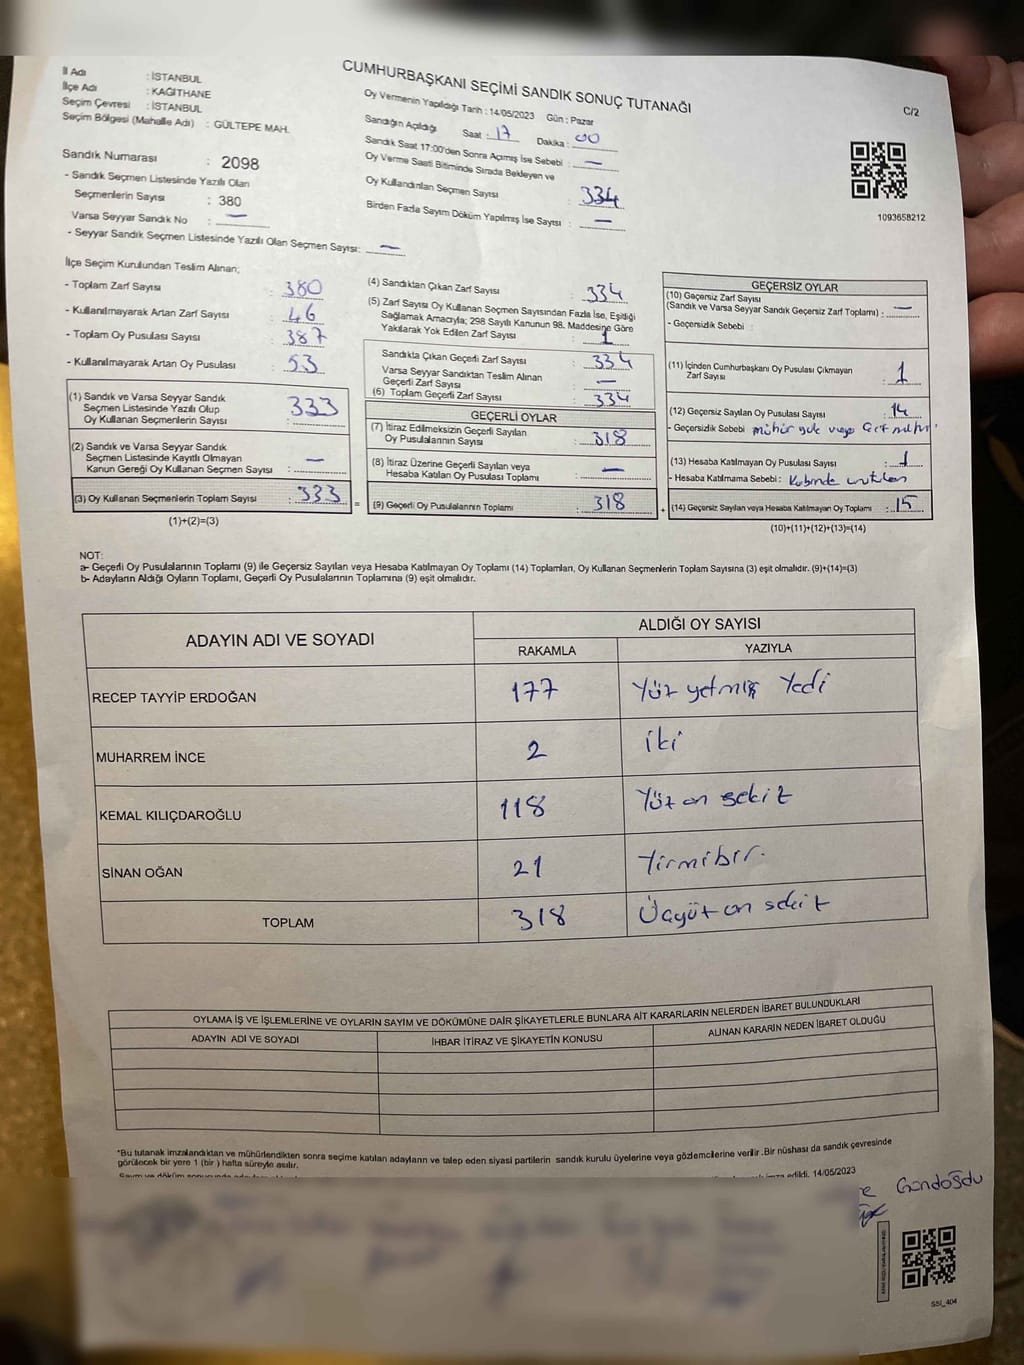 İl Adı : İSTANBUL
İlçe Adı : KAĞITHANE
Seçim Çevresi : İSTANBUL
Seçim Bölgesi (Mahalle Adı) : GÜLTEPE MAH.
Sandık Numarası : 2098
- Sandık Seçmen Listesinde Yazılı Olan
Seçmenlerin Sayısı : 380
Varsa Seyyar Sandık No : —
- Seyyar Sandık Seçmen Listesinde Yazılı Olan Seçmen Sayısı: —
CUMHURBAŞKANI SEÇİMİ SANDIK SONUÇ TUTANAĞI
Oy Vermenin Yapıldığı Tarih : 14/05/2023 Gün : Pazar
Sandığın Açıldığı Saat : 17 Dakika : 00
Sandık Saat 17:00'den Sonra Açılmış İse Sebebi : —
Oy Verme Saati Bitiminde Sırada Bekleyen ve
Oy Kullandırılan Seçmen Sayısı : 334
Birden Fazla Sayım Döküm Yapılmış İse Sayısı : —
C/2
1093658212
İlçe Seçim Kurulundan Teslim Alınan;
- Toplam Zarf Sayısı : 380
- Kullanılmayarak Artan Zarf Sayısı : 46
- Toplam Oy Pusulası Sayısı : 387
- Kullanılmayarak Artan Oy Pusulası : 53
(1) Sandık ve Varsa Seyyar Sandık
Seçmen Listesinde Yazılı Olup
Oy Kullanan Seçmenlerin Sayısı : 333
(2) Sandık ve Varsa Seyyar Sandık
Seçmen Listesinde Kayıtlı Olmayan
Kanun Gereği Oy Kullanan Seçmen Sayısı : —
(3) Oy Kullanan Seçmenlerin Toplam Sayısı : 333
(1)+(2)=(3)
(4) Sandıktan Çıkan Zarf Sayısı : 334
(5) Zarf Sayısı Oy Kullanan Seçmen Sayısından Fazla İse, Eşitliği
Sağlamak Amacıyla; 298 Sayılı Kanunun 98. Maddesine Göre
Yakılarak Yok Edilen Zarf Sayısı : 1
Sandıkta Çıkan Geçerli Zarf Sayısı : 334
Varsa Seyyar Sandıktan Teslim Alınan
Geçerli Zarf Sayısı : —
(6) Toplam Geçerli Zarf Sayısı : 334
GEÇERLİ OYLAR
(7) İtiraz Edilmeksizin Geçerli Sayılan
Oy Pusulalarının Sayısı : 318
(8) İtiraz Üzerine Geçerli Sayılan veya
Hesaba Katılan Oy Pusulası Toplamı : —
(9) Geçerli Oy Pusulalarının Toplamı : 318
=
+
GEÇERSİZ OYLAR
(10) Geçersiz Zarf Sayısı
(Sandık ve Varsa Seyyar Sandık Geçersiz Zarf Toplamı) : —
- Geçersizlik Sebebi :
(11) İçinden Cumhurbaşkanı Oy Pusulası Çıkmayan
Zarf Sayısı : 1
(12) Geçersiz Sayılan Oy Pusulası Sayısı : 14
- Geçersizlik Sebebi mühür yok veya çift mühür
(13) Hesaba Katılmayan Oy Pusulası Sayısı : 1
- Hesaba Katılmama Sebebi : Kabinde unutulan
(14) Geçersiz Sayılan veya Hesaba Katılmayan Oy Toplamı : 15
(10)+(11)+(12)+(13)=(14)
NOT:
a- Geçerli Oy Pusulalarının Toplamı (9) ile Geçersiz Sayılan veya Hesaba Katılmayan Oy Toplamı (14) Toplamları, Oy Kullanan Seçmenlerin Toplam Sayısına (3) eşit olmalıdır. (9)+(14)=(3)
b- Adayların Aldığı Oyların Toplamı, Geçerli Oy Pusulalarının Toplamına (9) eşit olmalıdır.
ADAYIN ADI VE SOYADI
ALDIĞI OY SAYISI
RAKAMLA YAZIYLA
RECEP TAYYİP ERDOĞAN 177 Yüz yetmiş Yedi
MUHARREM İNCE 2 iki
KEMAL KILIÇDAROĞLU 118 Yüz on sekiz
SİNAN OĞAN 21 Yirmibir.
TOPLAM 318 Üçyüz on sekiz
OYLAMA İŞ VE İŞLEMLERİNE VE OYLARIN SAYIM VE DÖKÜMÜNE DAİR ŞİKAYETLERLE BUNLARA AİT KARARLARIN NELERDEN İBARET BULUNDUKLARI
ADAYIN ADI VE SOYADI İHBAR İTİRAZ VE ŞİKAYETİN KONUSU ALINAN KARARIN NEDEN İBARET OLDUĞU
*Bu tutanak imzalandıktan ve mühürlendikten sonra seçime katılan adayların ve talep eden siyasi partilerin sandık kurulu üyelerine veya gözlemcilerine verilir .Bir nüshası da sandık çevresinde
görülecek bir yere 1 (bir ) hafta süreyle asılır.
imza edildi. 14/05/2023
Gündoğdu
SSİ_404